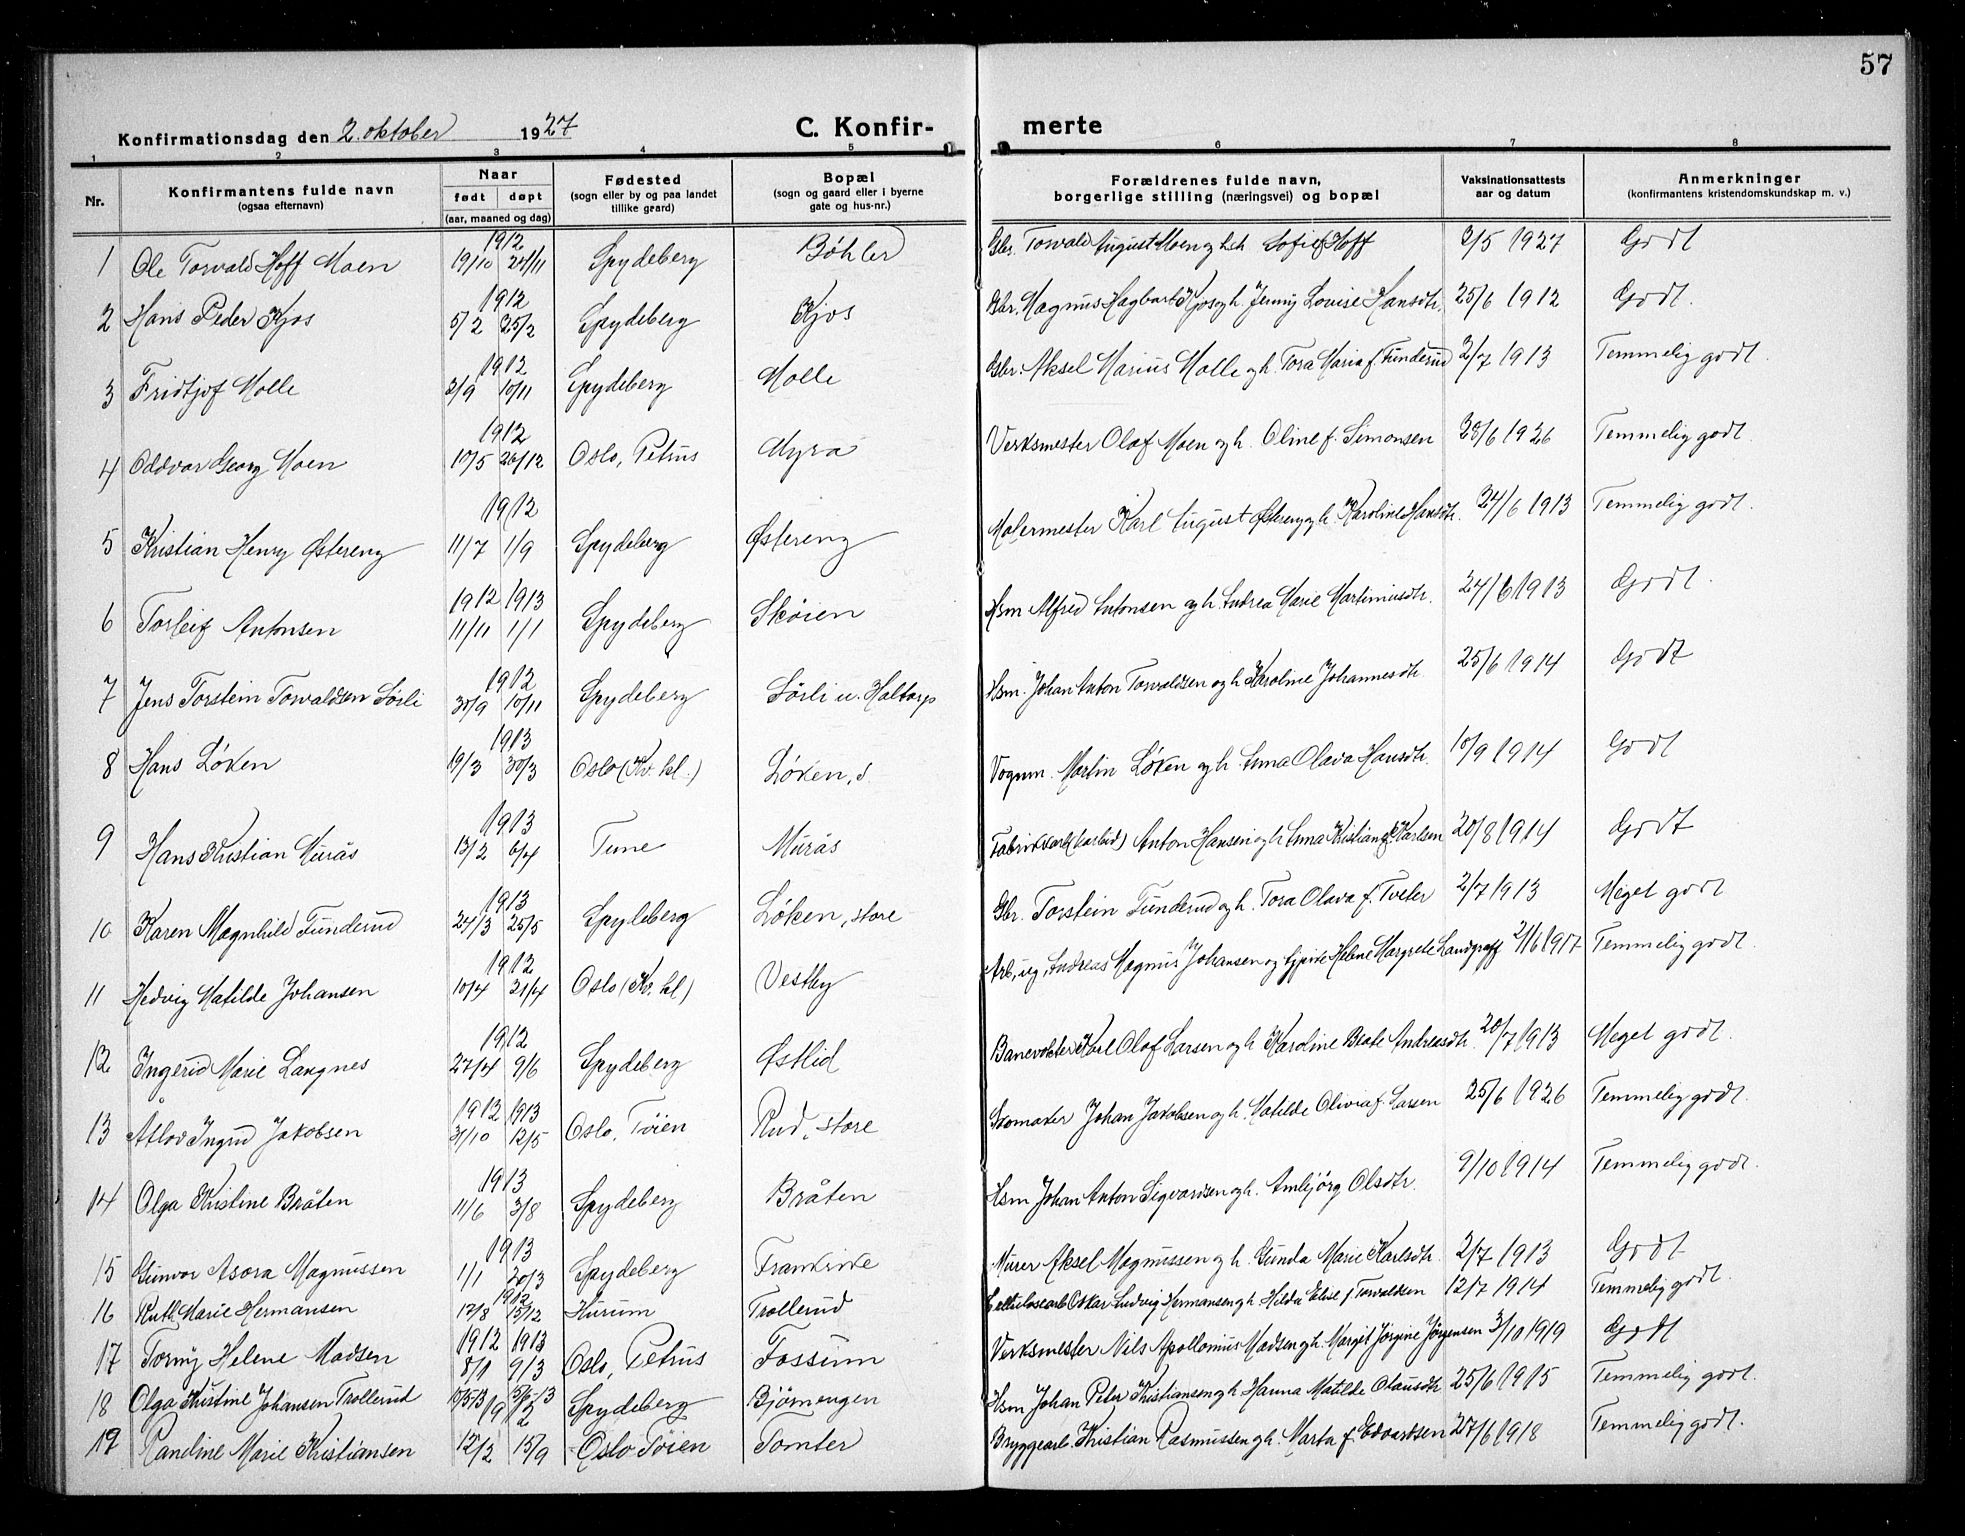 57
Konfirmationsdag den 2. oktober 1927 C. Konfirmerte
1 2 3 4 5 6 7 8
Nr. Konfirmantens fulde navn (ogsaa efternavn) Naar født døpt (aar, maaned og dag) Fødested (sogn eller by og paa landet tillike gaard) Bopæl (sogn og gaard eller i byerne gate og hus-nr.) Forældrenes fulde navn, borgerlige stilling (næringsvei) og bopæl Vaksinationsattests aar og datum Anmerkninger (konfirmantens kristendomskundskap m. v.)
1 Ole Torvald Hoff Moen 1912 19/10 24/11 Spydeberg Bøhler Gbr. Torvald August Moen og h. Sofie f. Hoff 2/5 1927 Godt
2 Hans Peder Kjos 1912 5/2 25/2 Spydeberg Kjos Gbr. Magnus Hagbart Kjos og h. Jenny Lovise Hansdtr. 25/6 1912 Godt.
3 Fridtjof Molle 1912 2/9 10/11 Spydeberg Molle Gbr. Aksel Marius Molle og h. Tora Maria f. Funderud 2/7 1913 Temmelig godt.
4 Oddvar Georg Moen 1912 10/5 26/12 Oslo, Petrus Myra Verksmester Olaf Moen og h. Oline f. Simonsen 28/6 1926 Temmelig godt
5 Kristian Henry Østereng 1912 11/7 1/9 Spydeberg Østereng Malermester Karl August Østereng og h. Karoline Hansdtr. 24/6 1913 Temmelig godt.
6 Torleif Antonsen 1912 1913 11/11 1/1 Spydeberg Skøien Hsm Alfred Antonsen og h. Andrea Marie Martiniusdtr. 24/6 1913 Godt.
7 Jens Torstein Torvaldsen Sørli 1912 30/9 10/11 Spydeberg Sørli u. Haltorp Hsm. Johan Anton Torvaldsen og h. Karoline Johannesdtr 25/6 1914 Godt
8 Hans Løken 1913 19/3 30/3 Oslo (Kv. kl.) Løken, s. Vognm. Martin Løken og h. Anna Olava Hansdtr. 10/9 1914 Godt
9 Hans Kristian Murås 1913 13/2 6/4 Tune Murås Fabrikkarb (karbid) Anton Hansen og h. Anna Kristiane f. Karlsen 20/8 1914 Godt
10 Karen Magnhild Funderud 1913 24/3 25/5 Spydeberg Løken, store Gbr. Torstein Funderud og h. Tora Olava f. Tveter 2/7 1913 Meget godt
11 Hedvig Matilde Johansen 1912 10/4 21/4 Oslo (Kv. kl) Vestby Arb., ug, Andreas Magnus Johansen og pike Helene Margrete Landgraff 21/6 1917 Temmelig godt.
12 Ingerid Marie Langnes 1912 27/4 9/6 Spydeberg Østlid Banevokter Karl Olaf Larsen og h. Karoline Beate Andreasdtr. 20/7 1913 Meget godt.
13 Åslov Ingrid Jakobsen 1912 1913 31/10 12/5 Oslo, Tøien Rud, store Skomaker Johan Jakobsen og h. Matilde Olivia f. Larsen 25/6 1926 Temmelig godt.
14 Olga Kristine Bråten 1913 11/6 3/8 Spydeberg Bråten Hsm Johan Anton Sigvardsen og h. Arnbjørg Olsdtr 9/10 1914 Temmelig godt.
15 Gunvor Asora Magnussen 1913 1/1 20/3 Spydeberg Frankrike Murer Aksel Magnussen og h. Gunda Marie Karlsdtr. 2/7 1913 Godt
16 Ruth Marie Hermansen 1912 17/8 15/12 Hurum Trollerud Cellulosearb Oskar Ludvig Hermansen og h. Hilda Elise f Torvaldsen 12/7 1914 Temmelig godt.
17 Torny Helene Madsen 1912 1913 8/11 9/3 Oslo, Petrus Fossum Verksmester Nils Apollonius Madsen og h. Margit Jørgine Jørgensen 3/10 1919 Godt
18 Olga Kristine Johansen Trollerud 10/5-13 5/6-13 Spydeberg Bjørnengen Hsm Johan Peter Kristiansen og h. Hanna Matilde Olausdtr 25/6 1915 Temmelig godt.
19 Randine Marie Kristiansen 1912 12/2 15/9 Oslo Tøien Tomter Bryggearb. Kristian Rasmussen og h. Marta f. Edvardsen 27/6 1918 Temmelig godt.